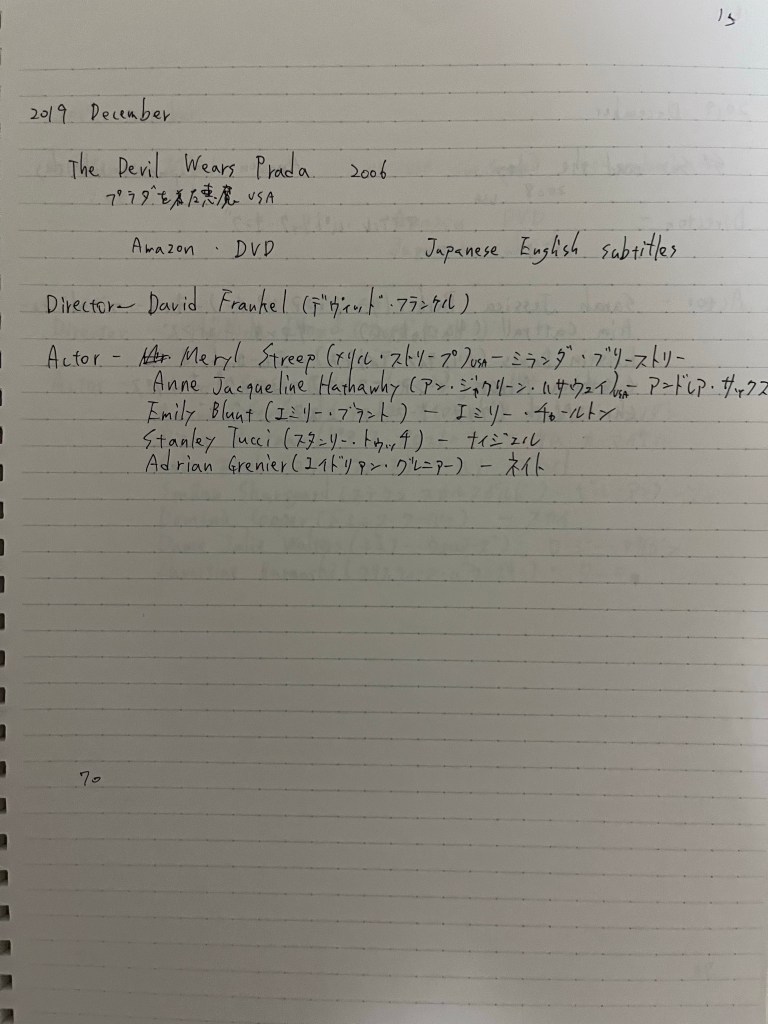 15
2019 December
The Devil Wears Prada 2006
プラダを着た悪魔 USA
Amazon・DVD Japanese English subtitles
Director - David Frankel (デヴィッド・フランケル)
Actor - Meryl Streep (メリル・ストリープ) USA - ミランダ・プリーストリー
Anne Jacqueline Hathawhy (アン・ジャクリーン・ハサウェイ) USA - アンドレア・サックス
Emily Blunt (エミリー・ブラント) - エミリー・チャールトン
Stanley Tucci (スタンリー・トゥッチ) - ナイジェル
Adrian Grenier (エイドリアン・グレニアー) - ネイト
70